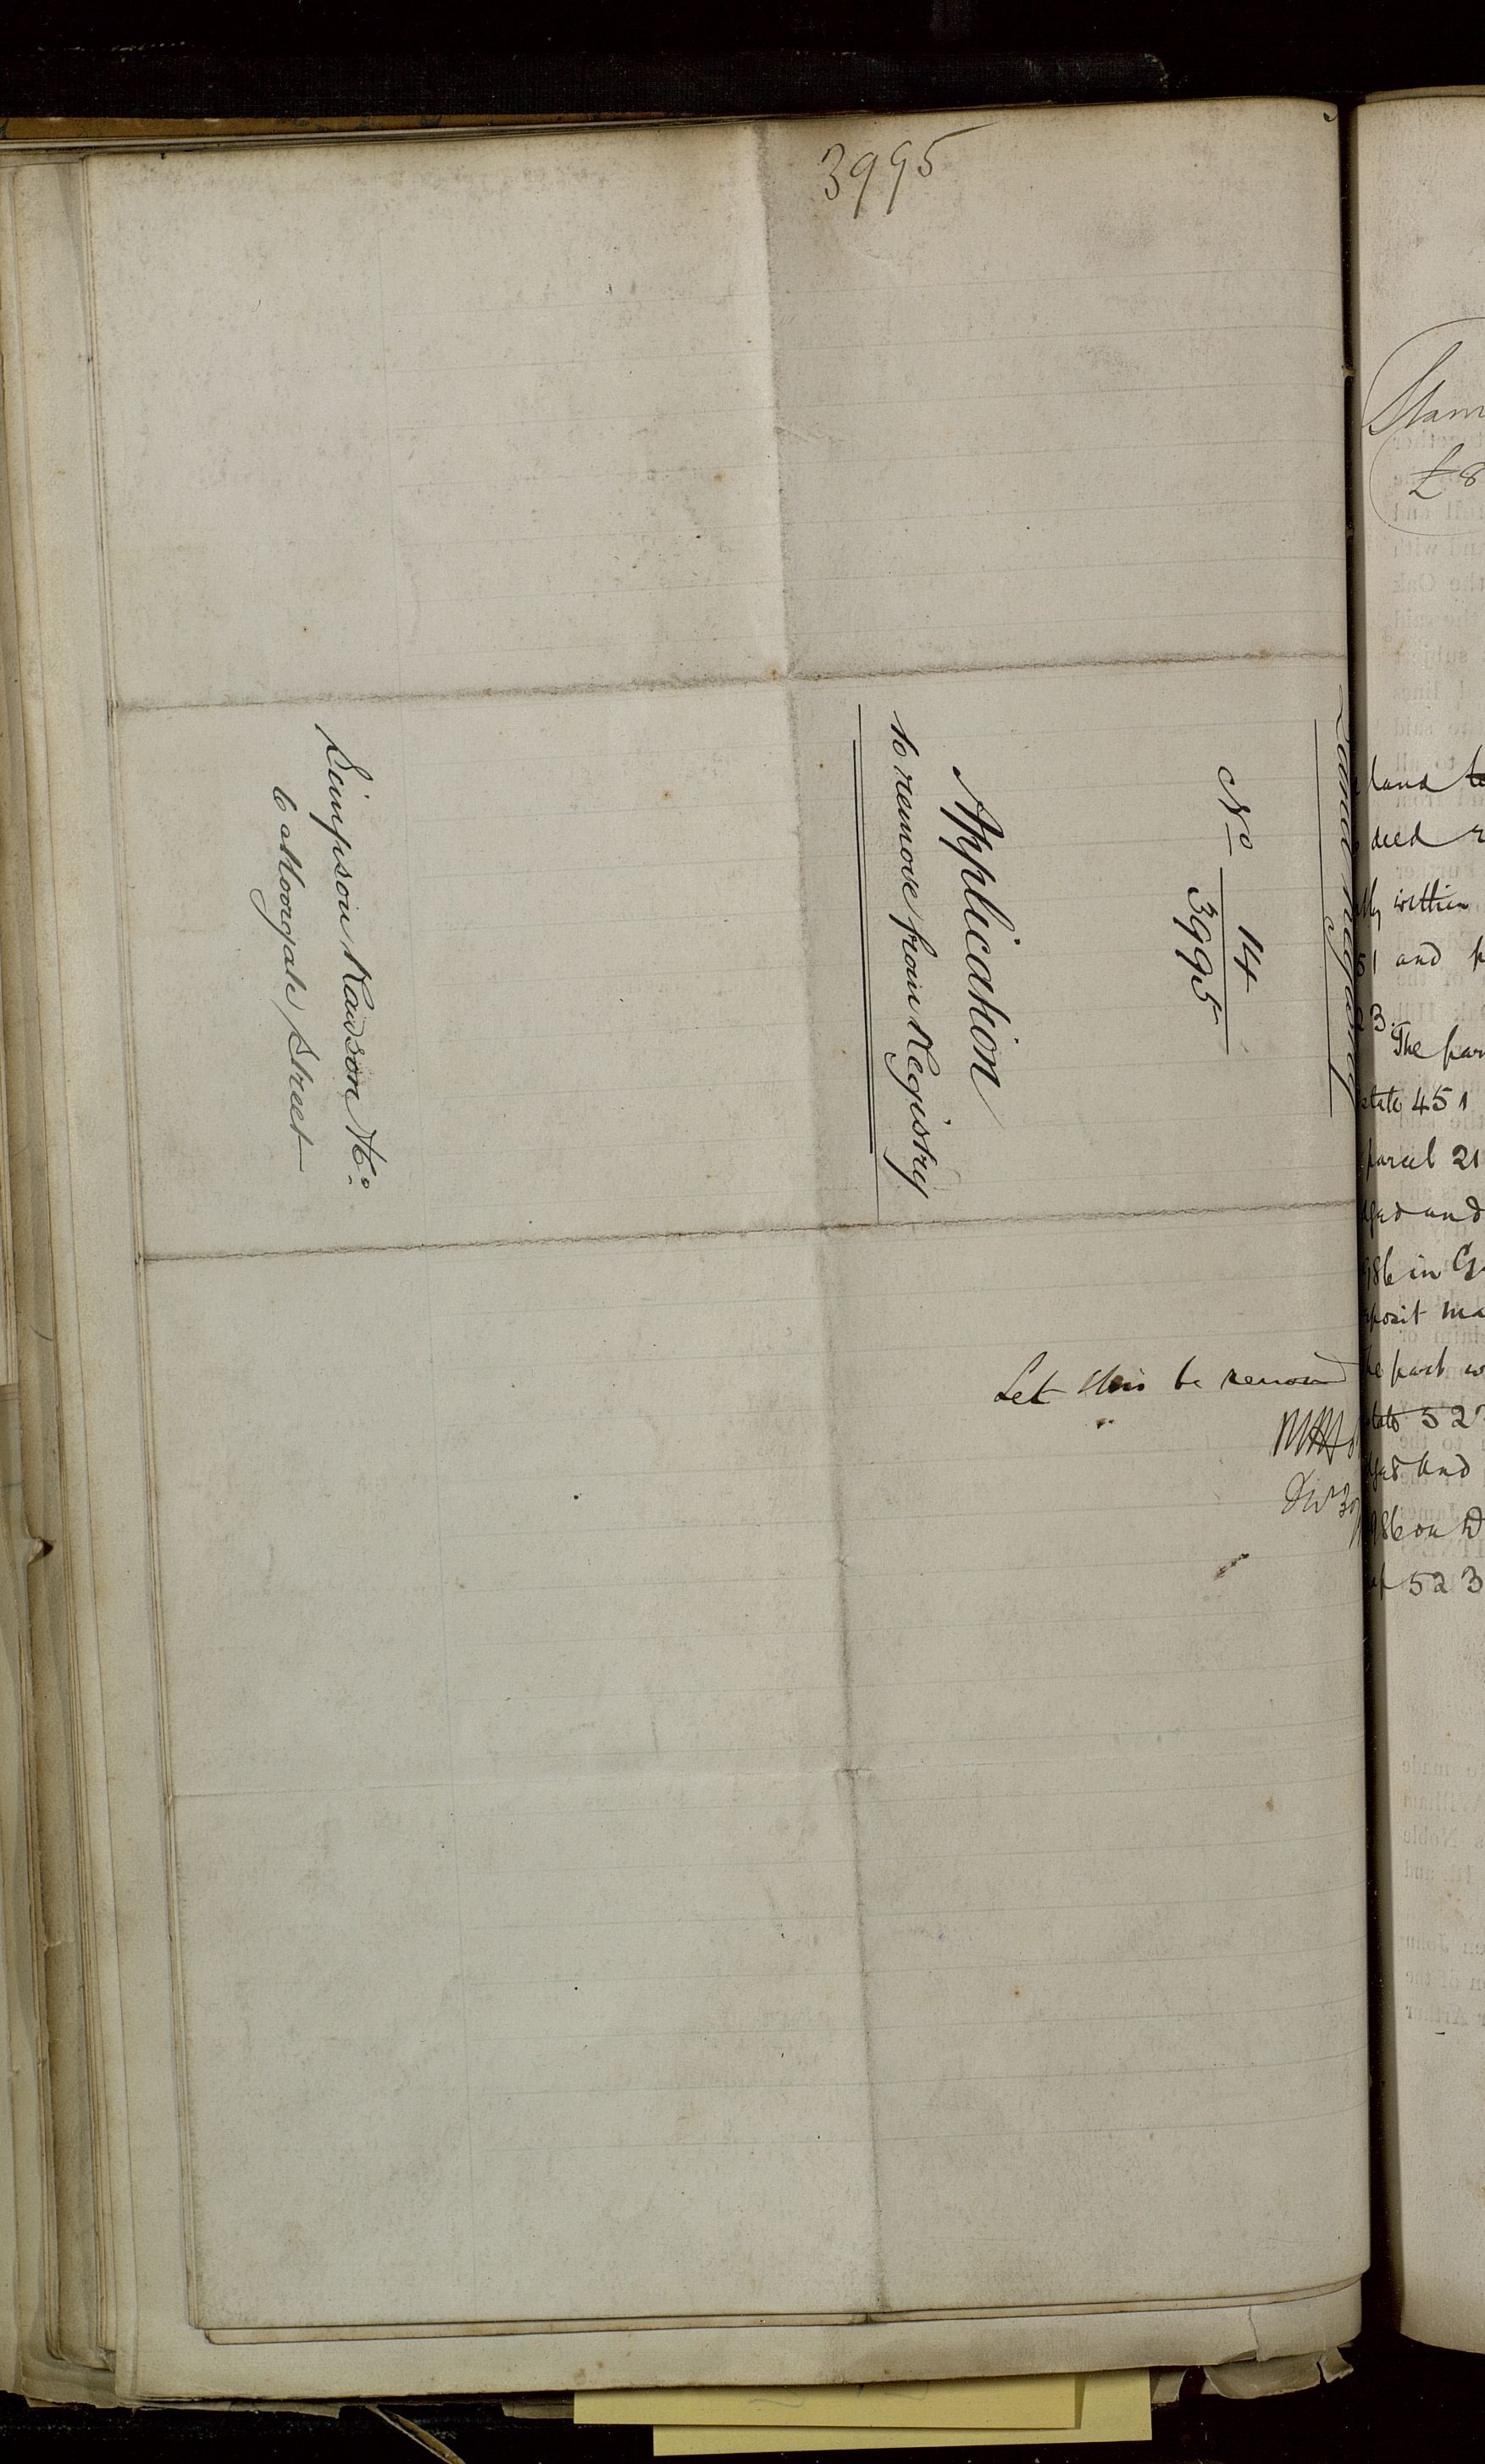 3995
Land Registry
No 14
3995
Application
to remove from Registry
Simpson Rawson & Co
6 Moorgate Street
Let this be removed
Stam
£8
land
deed
within
and
23.
The par
451
parcel 21
and
986 in
posit ma
part w
523
and
986 on
of 523